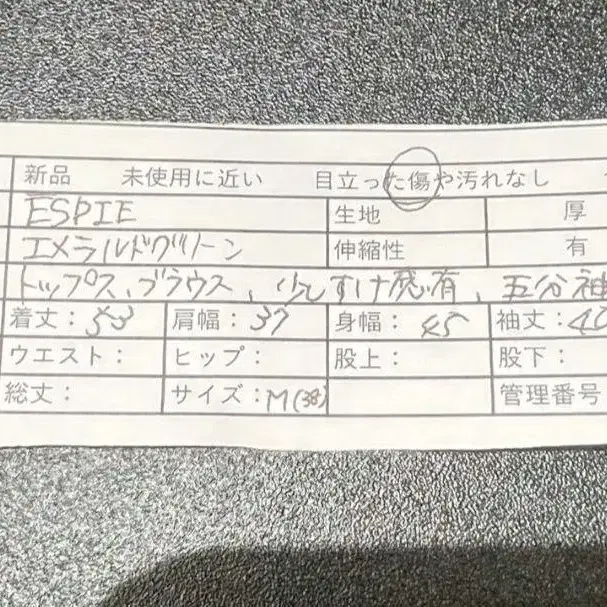 新品 未使用に近い 目立った傷や汚れなし
ESPIE 生地 厚
エメラルドグリーン 伸縮性 有
トップス、ブラウス、少しすけ感有、五分袖
着丈：53 肩幅：37 身幅：45 袖丈：40
ウエスト： ヒップ： 股上： 股下：
総丈： サイズ：M(38) 管理番号